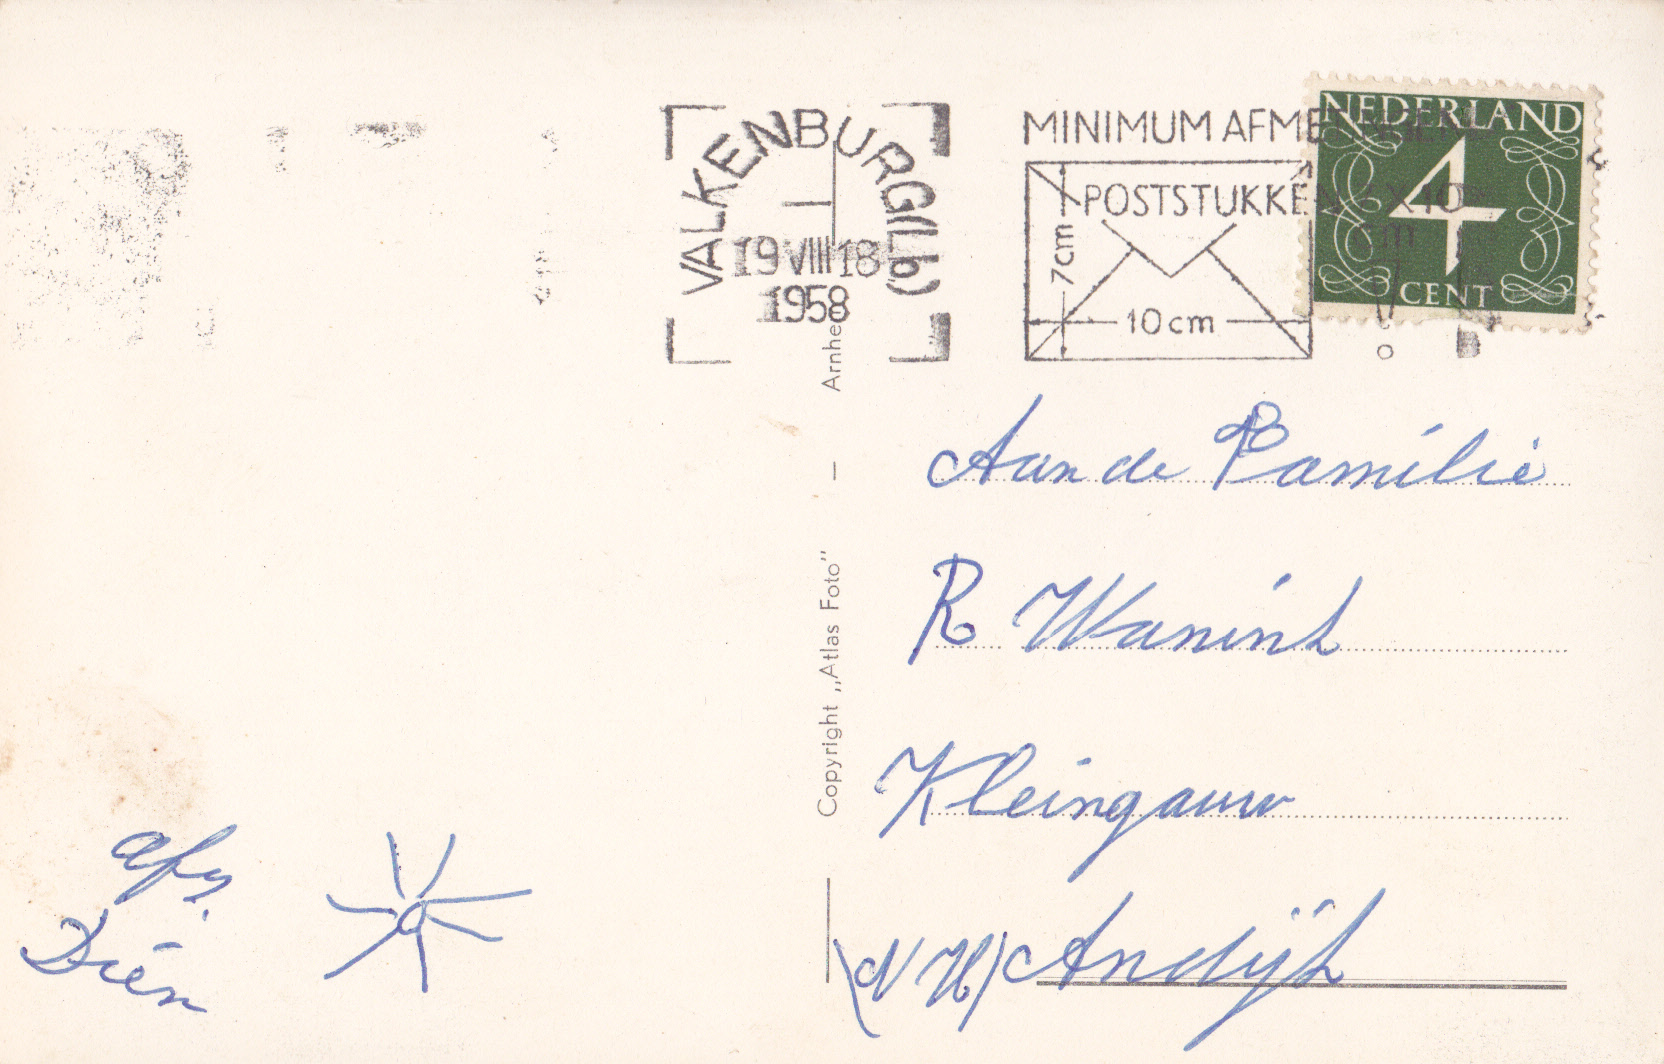 VALKENBURG (Lb)
19 VIII 18
1958
MINIMUM AFME
POSTSTUKKEN 7X10
cm
7cm
10cm
NEDERLAND
4
CENT
Copyright „Atlas Foto" — Arnhe
Aan de Familie
R Wanink
Kleingouw
(N H) Andijk
afz.
Dien